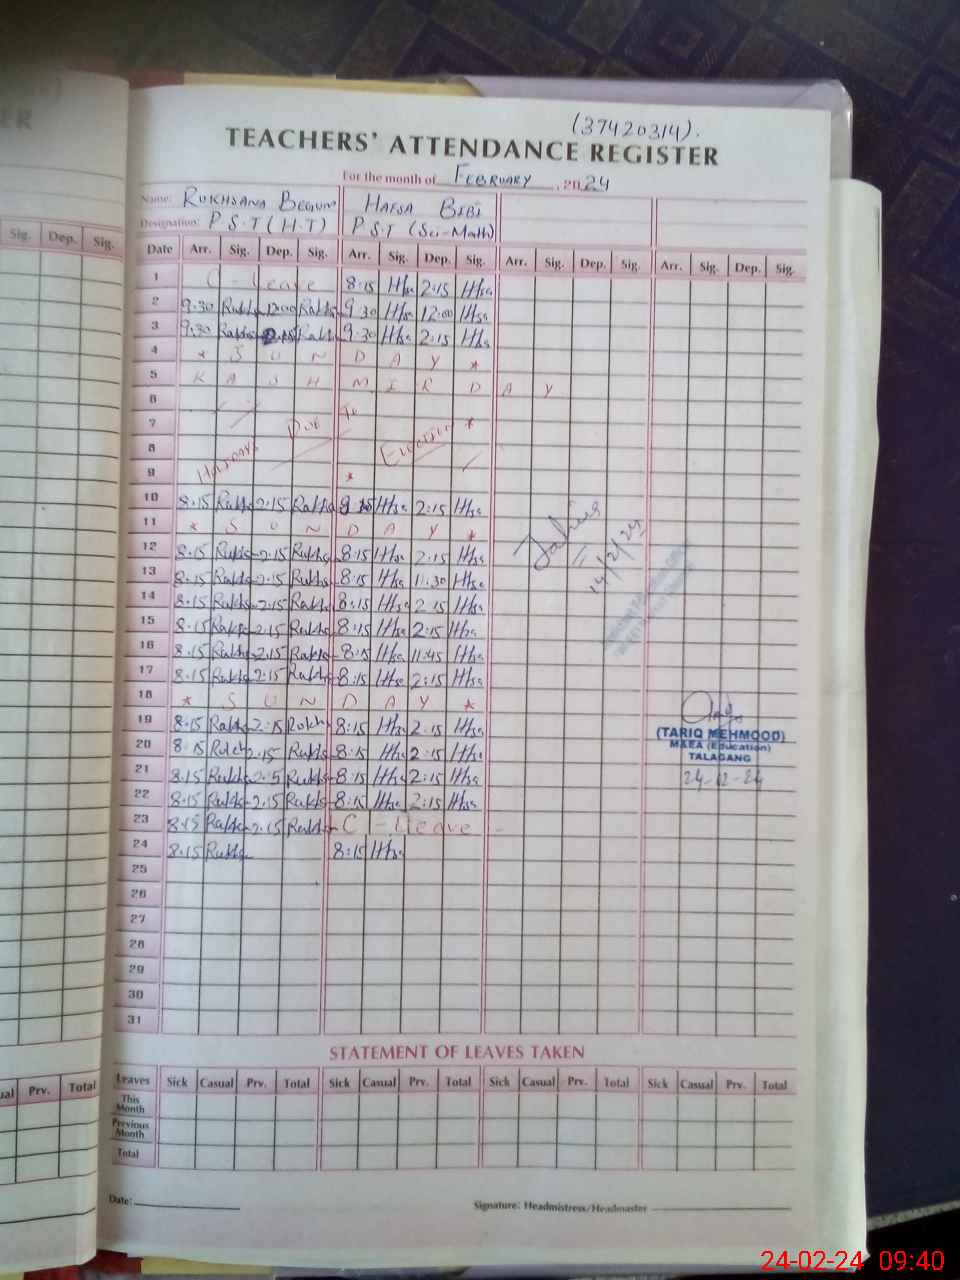 (37420314).
TEACHERS' ATTENDANCE REGISTER
For the month of FEBRUARY, 2024
Name: RUKHSANA BEGUM HAFSA BIBI
Designation: P S.T (H.T) P S.T (Sci-Math)
Date Arr. Sig. Dep. Sig. Arr. Sig. Dep. Sig. Arr. Sig. Dep. Sig. Arr. Sig. Dep. Sig.
1 C - Leave 8:15 Hfsa 2:15 Hfsa
2 9:30 Rukhs 12:00 Rukhs 9:30 Hfsa 12:00 Hfsa
3 9:30 Rukhs 2:15 Rukhs 9:30 Hfsa 2:15 Hfsa
4 * S U N D A Y *
5 K A S H M I R D A Y
6
7 DUE To *
8 HOLIDAYS ELECTION
9 *
10 8:15 Rukhs 2:15 Rukhs Hfsa 2:15 Hfsa
11 * S U N D A Y *
12 8:15 Rukhs 2:15 Rukhs 8:15 Hfsa 2:15 Hfsa
13 8:15 Rukhs 2:15 Rukhs 8:15 Hfsa 11:30 Hfsa
14 8:15 Rukhs 2:15 Rukhs 8:15 Hfsa 2:15 Hfsa
15 8:15 Rukhs 2:15 Rukhs 8:15 Hfsa 2:15 Hfsa
16 8:15 Rukhs 2:15 Rukhs 8:15 Hfsa 11:45 Hfsa
17 8:15 Rukhs 2:15 Rukhs 8:15 Hfsa 2:15 Hfsa
18 * S U N D A Y *
19 8:15 Rukhs 2:15 Rukhs 8:15 Hfsa 2:15 Hfsa
20 8:15 Rukhs 2:15 Rukhs 8:15 Hfsa 2:15 Hfsa
21 8:15 Rukhs 2:15 Rukhs 8:15 Hfsa 2:15 Hfsa
22 8:15 Rukhs 2:15 Rukhs 8:15 Hfsa 2:15 Hfsa
23 8:15 Rukhs 2:15 Rukhs C - Leave -
24 8:15 Rukhs 8:15 Hfsa
25
26
27
28
29
30
31
14/2/24
(TARIQ MEHMOOD)
MAEA (Education)
TALAGANG
STATEMENT OF LEAVES TAKEN
Leaves Sick Casual Prv. Total Sick Casual Prv. Total Sick Casual Prv. Total Sick Casual Prv. Total
This Month
Previous Month
Total
Date:
Signature: Headmistress/Headmaster
ER
Sig. Dep. Sig.
ual Prv. Total
24-02-24 09:40